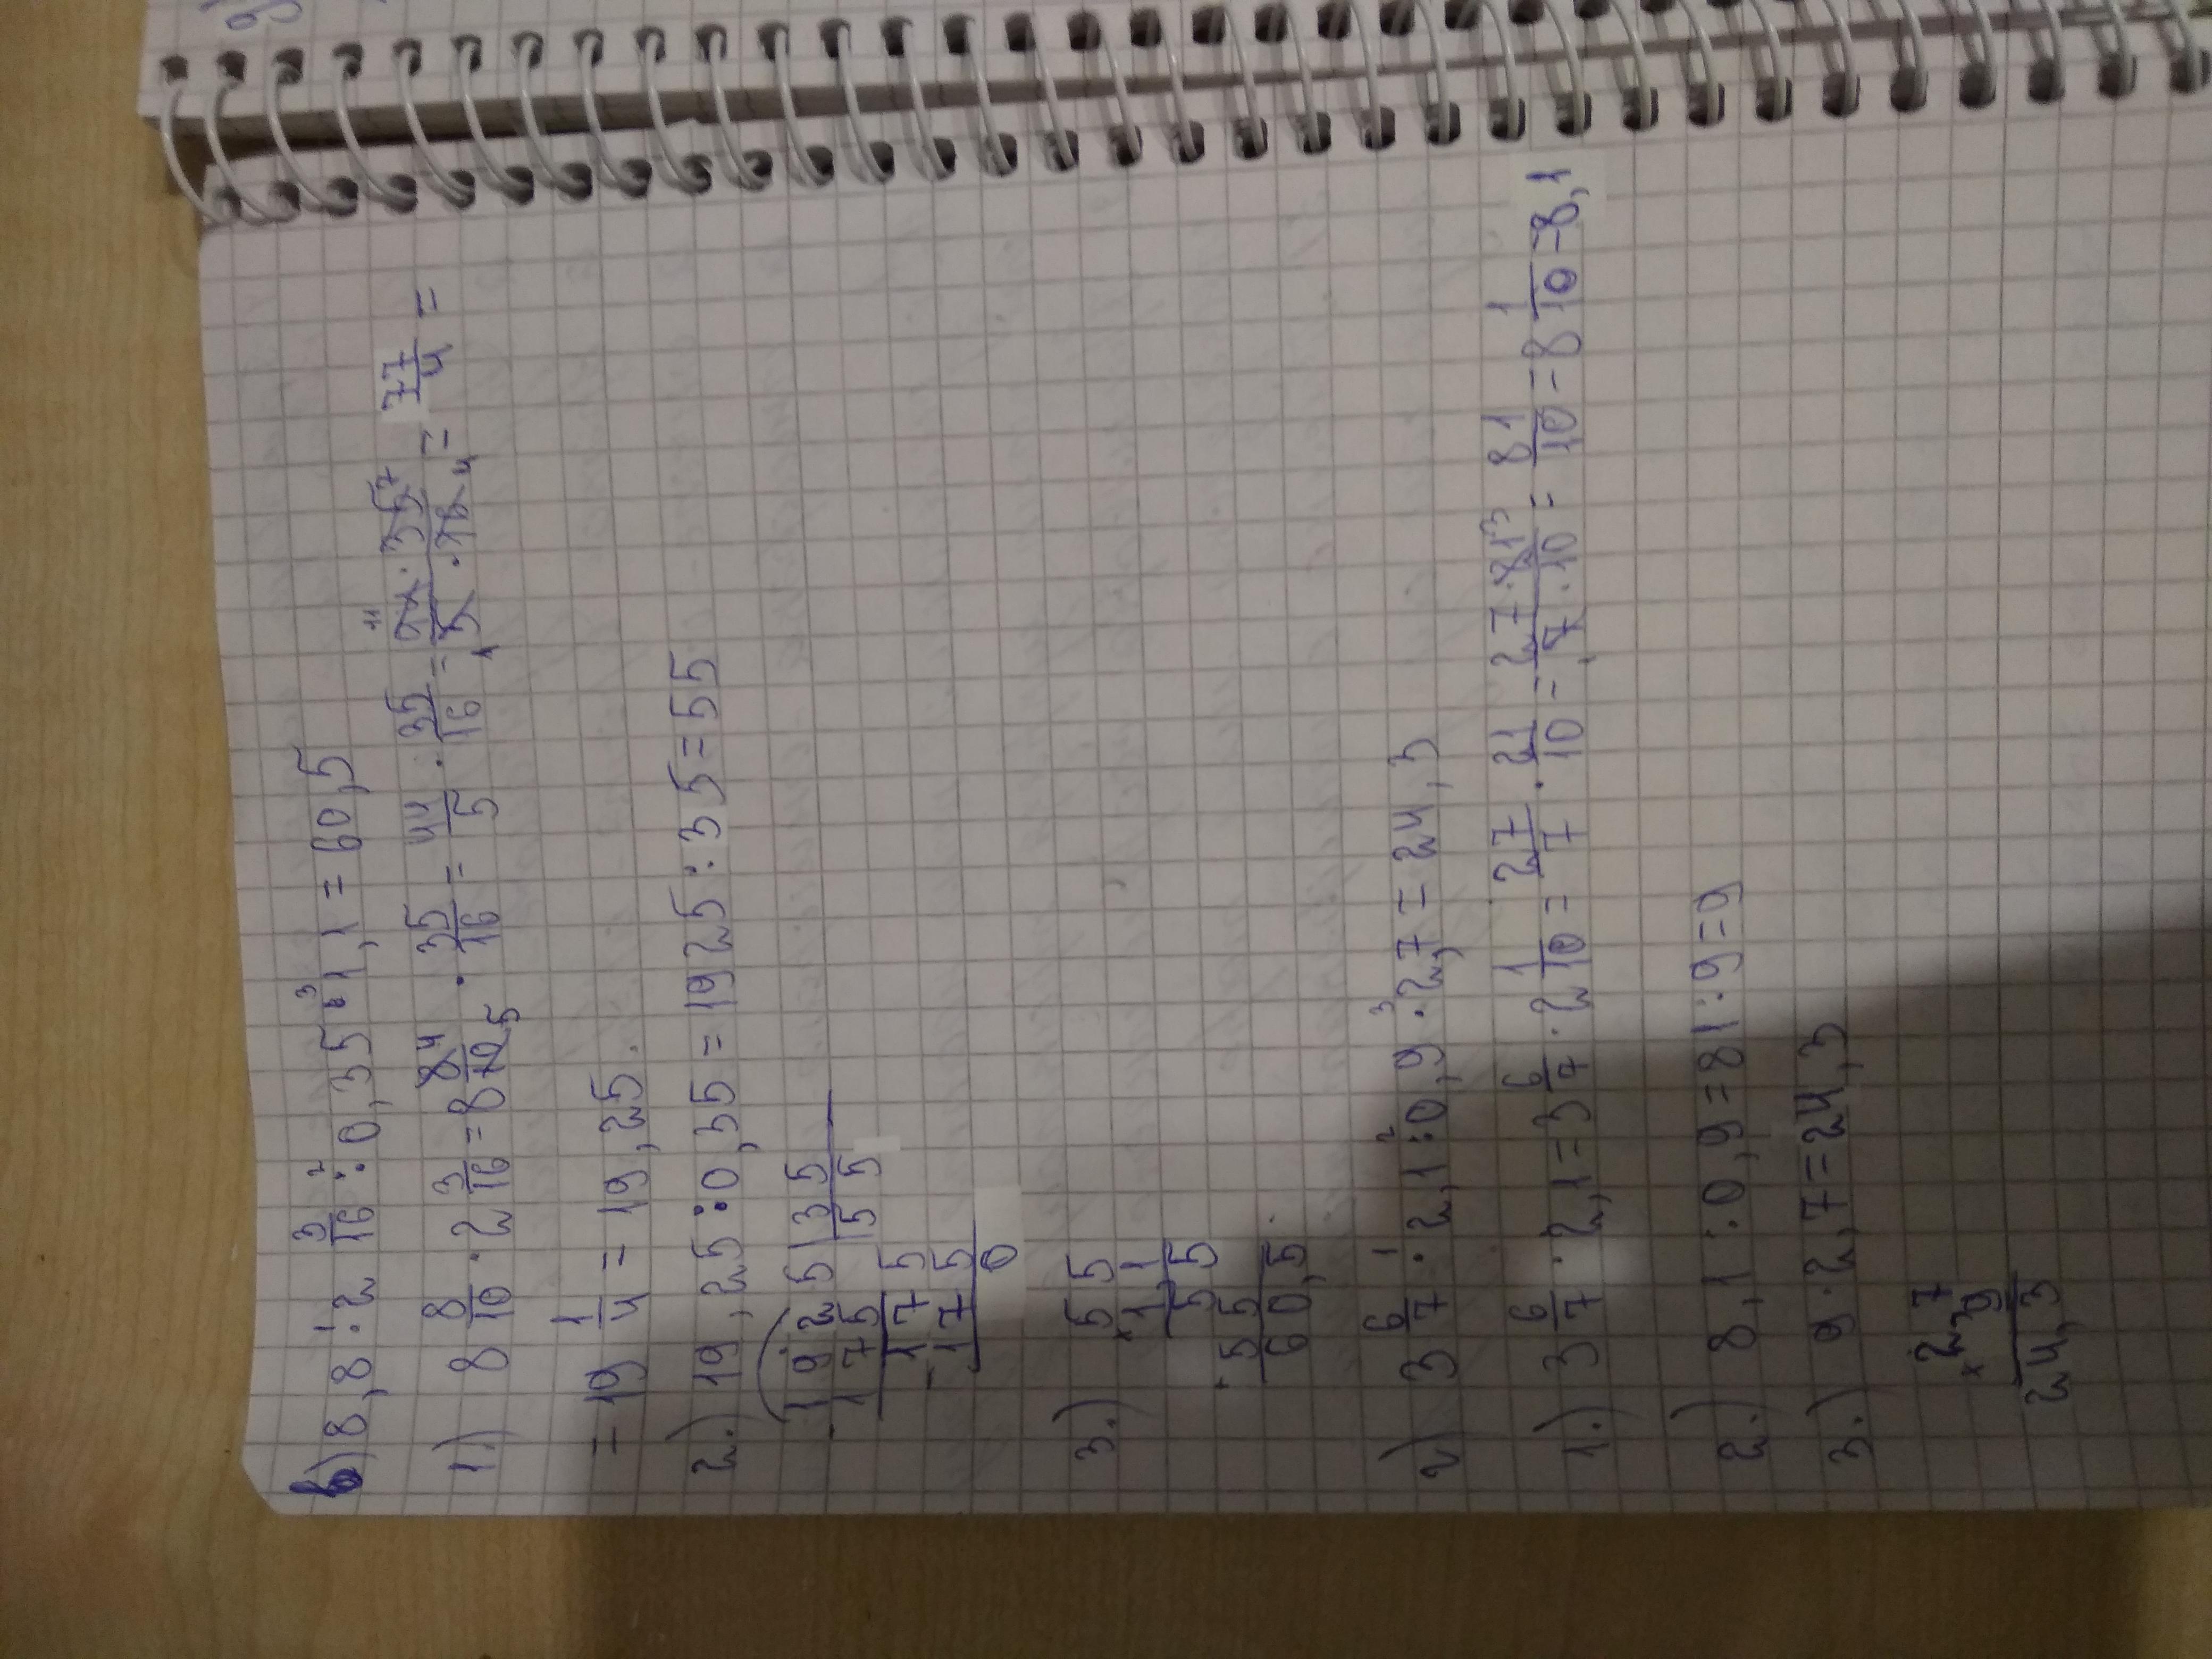 в) 8,8 ·¹ 2 3/16 :² 0,35 ·³ 1,1 = 60,5
1.) 8 8/10 · 2 3/16 = 8 8⁴/10₅ · 35/16 = 44/5 · 35/16 = ¹¹44 · 35⁷/₁5 · 16₄ = 77/4 =
= 19 1/4 = 19,25.
2.) 19,25 : 0,35 = 1925 : 35 = 55
- 1925 | 35
175 | 55
175
- 175
0
3.) 55
× 1,1
55
+ 55
60,5
г) 3 6/7 ·¹ 2,1 :² 0,9 ·³ 2,7 = 24,3
1.) 3 6/7 · 2,1 = 3 6/7 · 2 1/10 = 27/7 · 21/10 = 27 · 21³/₁7 · 10 = 81/10 = 8 1/10 = 8,1
2.) 8,1 : 0,9 = 81 : 9 = 9
3.) 9 · 2,7 = 24,3
× 2,7
9
24,3